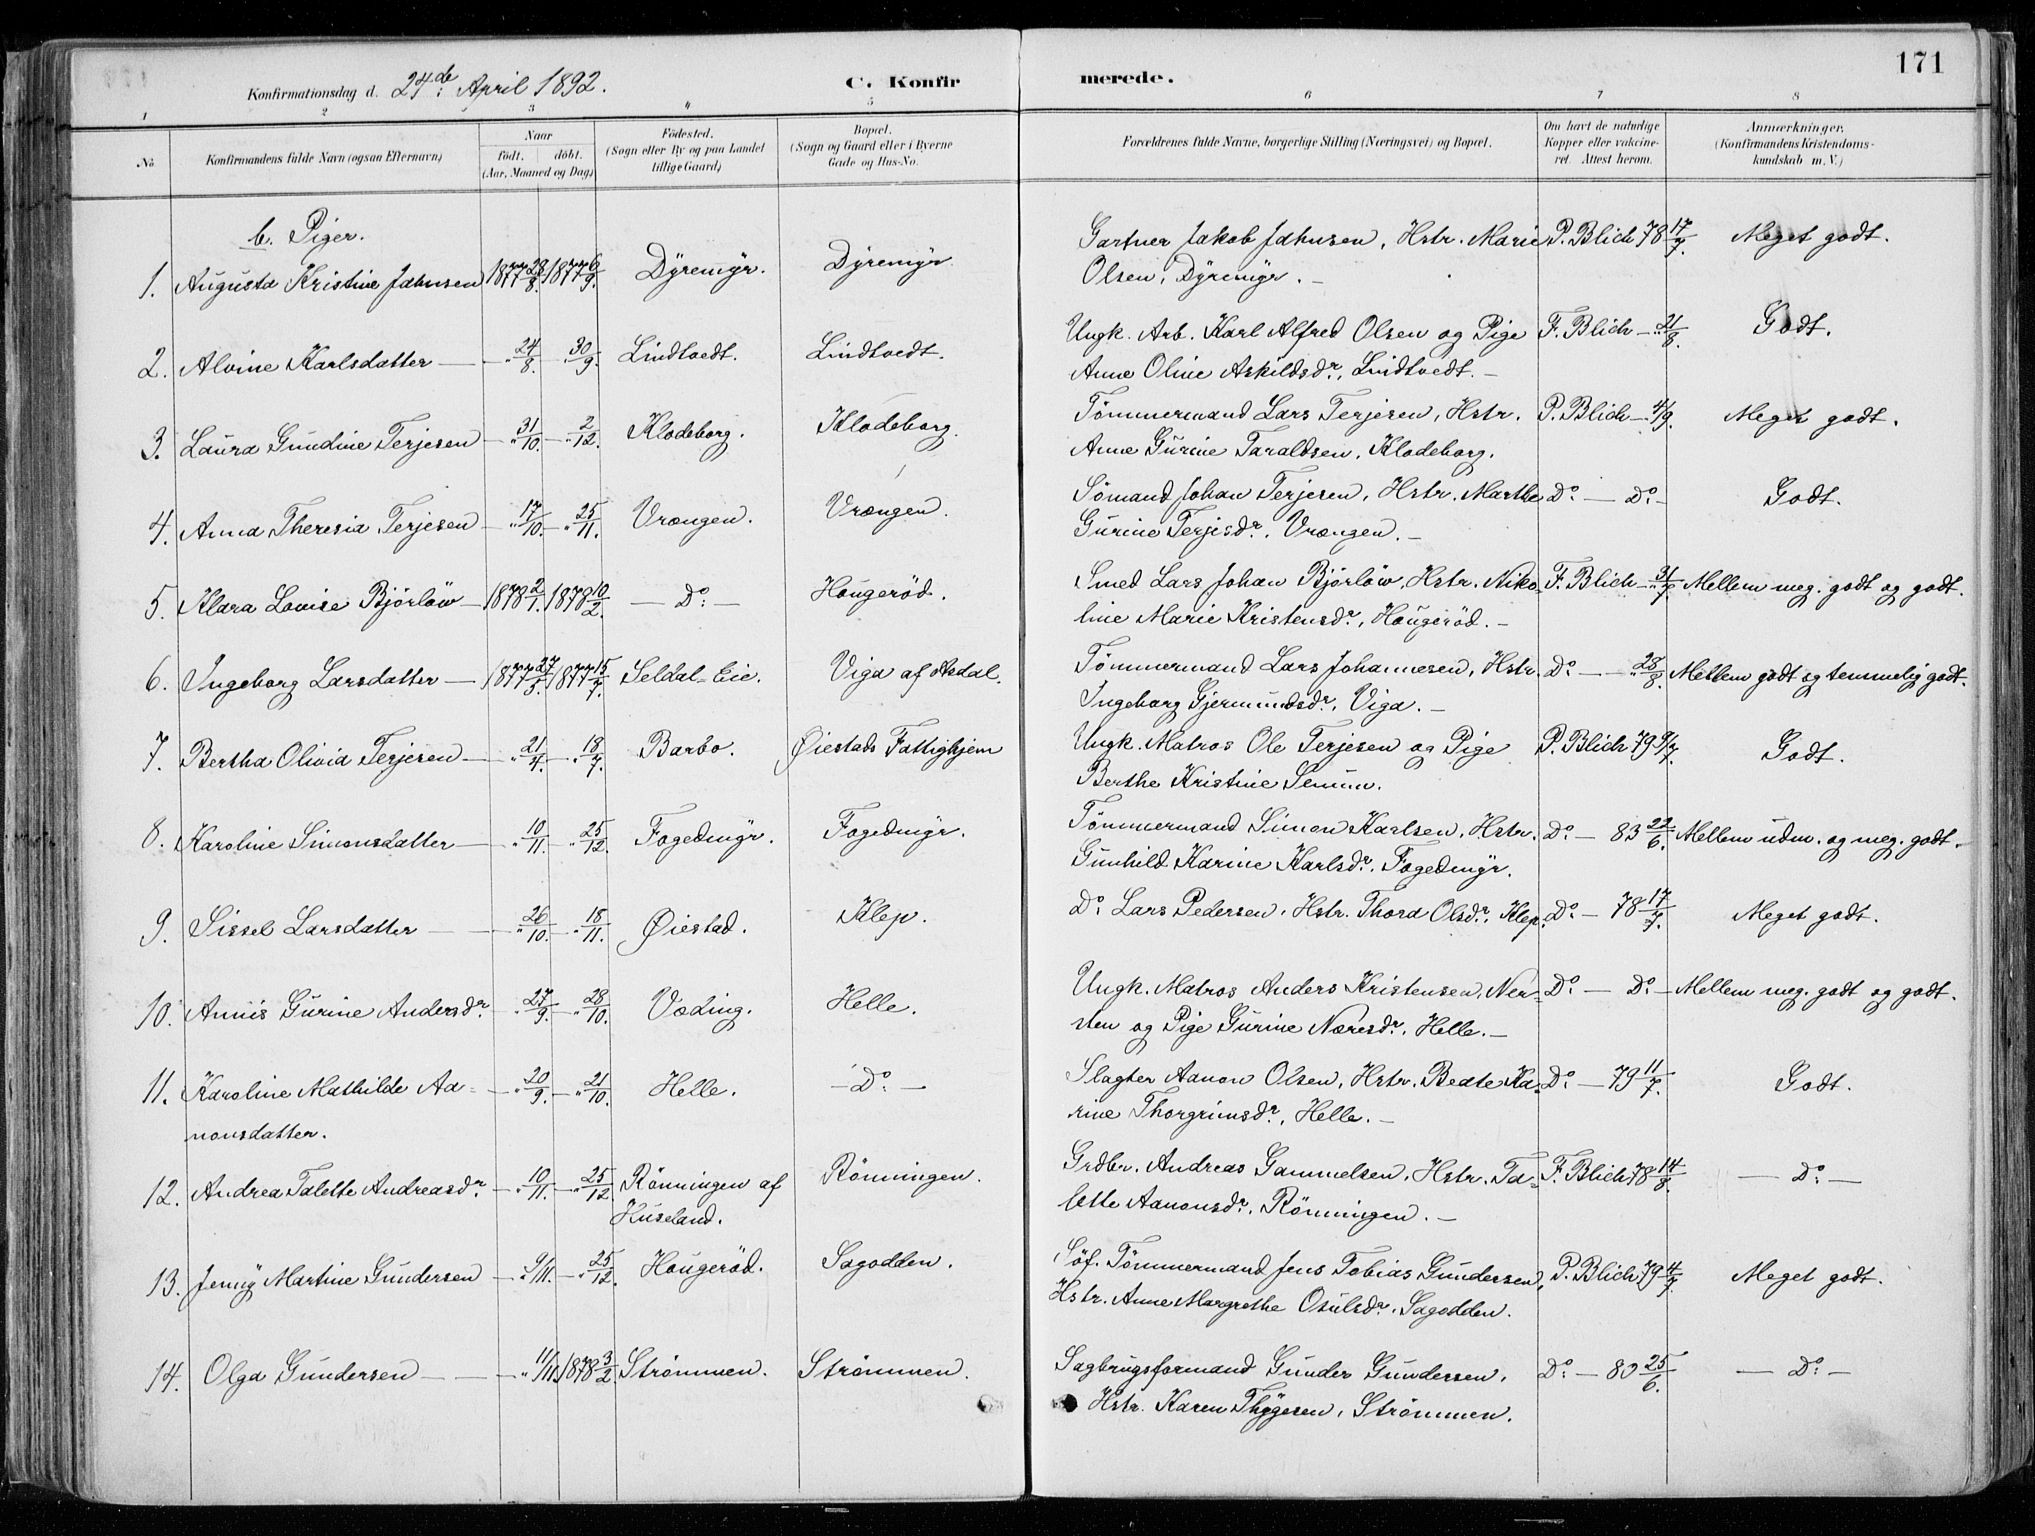 171
Konfirmationsdag d. 24de April 1892. C. Konfir merede.
1 2 3 4 5 6 7 8
No Konfirmandens fulde Navn (ogsaa Efternavn) Naar født. døbt. (Aar, Maaned og Dag) Födested. (Sogn eller By og paa Landet tillige Gaard) Bopæl. (Sogn og Gaard eller i Byerne Gade og Hus-No. Forældrenes fulde Navne, borgerlige Stilling (Næringsvei) og Bopæl. Om havt de naturlige Kopper eller vakcineret. Attest herom. Anmærkninger. (Konfirmandens Kristendomskundskab m. V.)
b. Piger.
1. Augusta Kristine Jahnsen 1877 28/8. 1877 6/9. Dÿremÿr. Dÿremÿr. Gartner Jakob Jahnsen, Hstr. Marie P. Blich 78 17/7. Meget godt.
Olsen, Dÿremÿr. —
2. Alvine Karlsdatter — — " 24/8. — " 30/9. Lindtvedt. Lindtvedt. Ungk. Arb. Karl Alfred Olsen og Pige F. Blich — " 21/8. Godt.
Anne Oline Askildsdr., Lindtvedt. —
3. Laura Gundine Terjesen — " 31/10. — " 2/12. Klodeborg. Klodeborg. Tömmermand Lars Terjesen, Hstr. P. Blich — " 4/9. Meget godt.
Anne Gurine Taraldsen, Klodeborg.
4. Anna Theresia Terjesen — " 17/10. — " 25/11. Vrængen. Vrængen. Sömand Johan Terjesen, Hstr. Marthe Do. — Do. — Godt.
Gurine Terjesdr., Vrængen. —
5. Klara Lovise Bjórlów — 1878 2/1. 1878 10/2. — Do: — Hougeröd. Smed Lars Johan Bjórlów, Hstr. Niko- F. Blich — " 31/7 Mellem meg. godt og godt.
line Marie Kristensdr., Hougeröd. —
6. Ingeborg Larsdatter — 1877 27/5. 1877 15/7. Seldal-Eie. Viga af Asdal. Tömmermand Lars Johannesen, Hstr. Do. — " 28/8. Mellem godt og temmelig godt.
Ingeborg Gjermundsdr., Viga. —
7. Bertha Olivia Terjesen — " 21/4. — " 18/7. Barbo. Øiestads Fattighjem Ungk. Matros Ole Terjesen og Pige P. Blich 79 9/7. Godt.
Berthe Kristine
8. Karoline Simonsdatter — " 10/11. — " 25/12. Fogedmÿr. Fogedmÿr. Tömmermand Simon Karlsen, Hstr. Do. — 83 22/6. Mellem udm. og meg. godt.
Gunhild Karine Karlsdr., Fogedmÿr.
9. Sissel Larsdatter — — " 26/10. — " 18/11. Øiestad. Klep. Do. Lars Pedersen, Hstr. Thora Olsdr., Klep. Do. — 78 17/7. Meget godt.
10. Annis Gurine Andersdr. — " 27/9. — " 28/10. Vöding. Helle. Ungk. Matros Anders Kristensen, Ner- Do. — Do. — Mellem meg. godt og godt.
sten og Pige Gurine Næresdr., Helle. —
11. Karoline Mathilde Aa- — " 20/9. — " 21/10. Helle. — Do — Slagter Aanon Olsen, Hstr. Beate Ka- Do. — 79 11/7. Godt.
nonsdatter. rine Thorgrimsdr., Helle. —
12. Andrea Talette Andreasdr. — " 10/11. — " 25/12. Rönningen af Rönningen. Grdbr. Andreas Gammelsen, Hstr. Ta- F. Blich 78 14/8. — Do: —
Huseland. lette Aanonsdr., Rönningen. —
13. Jenny Martine Gundersen — " 9/11. — " 25/12. Hougeröd. Sagodden. Söf. Tömmermand Jens Tobias Gundersen, P. Blich 79 4/7. Meget godt.
Hstr. Anne Margrethe Osulsdr., Sagodden.
14. Olga Gundersen — — — " 11/11. 1878 3/2. Strömmen. Strömmen. Sagbrugsformand Gunder Gundersen, Do. — 80 25/6. — Do: —
Hstr. Karen Thÿgesen, Strömmen.